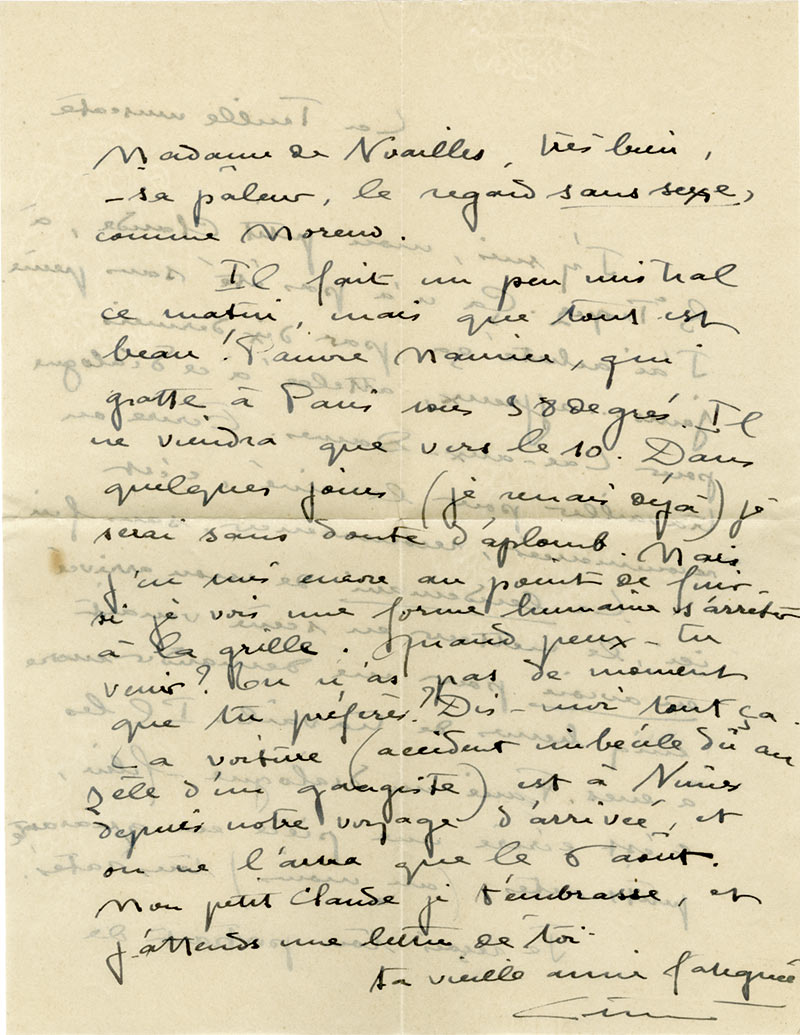 Madame de Noailles, très bien,
– sa pâleur, le regard sans sexe,
comme Moreno.
Il fait un peu mistral
ce matin, mais que tout est
beau! Pauvre Maurice, qui
gratte à Paris sous 38 degrés. Il
ne viendra que vers le 10. Dans
quelques jours (je renais déjà) je
serai sans doute d'aplomb. Mais
j'en suis encore au point de fuir
si je vois une forme humaine s'arrêter
à la grille. Quand peux-tu
venir? Tu n'as pas de moment
que tu préfères? Dis-moi tout ça.
La voiture (accident imbécile dû au
zèle d'un garagiste) est à Nîmes
depuis notre voyage d'arrivée, et
on ne l'aura que le 6 août.
Mon petit Claude je t'embrasse, et
j'attends une lettre de toi.
ta vieille amie fatiguée